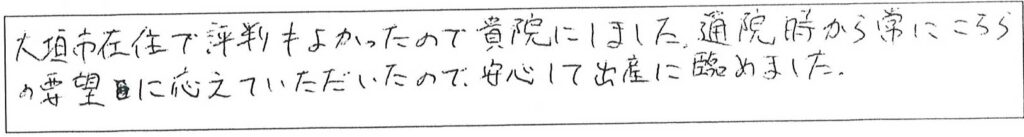 大垣市在住で評判もよかったので貴院にしました。通院時から常にこちら
の要望に応えていただいたので、安心して出産に臨めました。